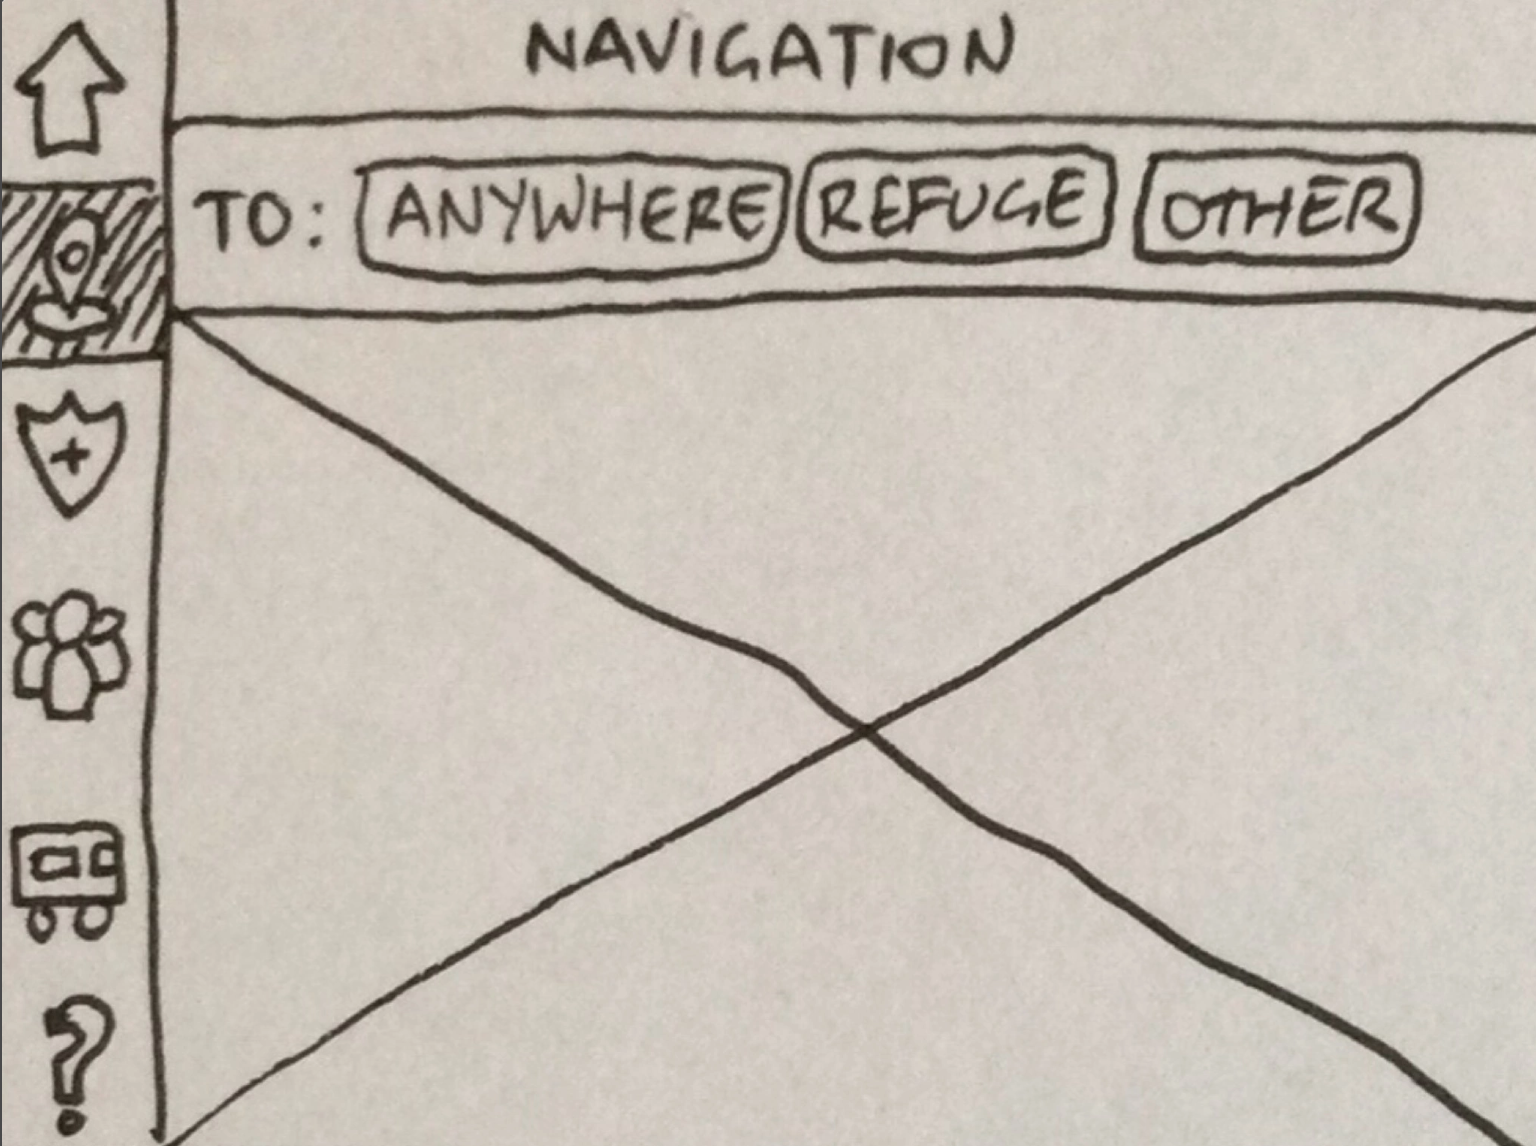 NAVIGATION
TO: ANYWHERE REFUGE OTHER